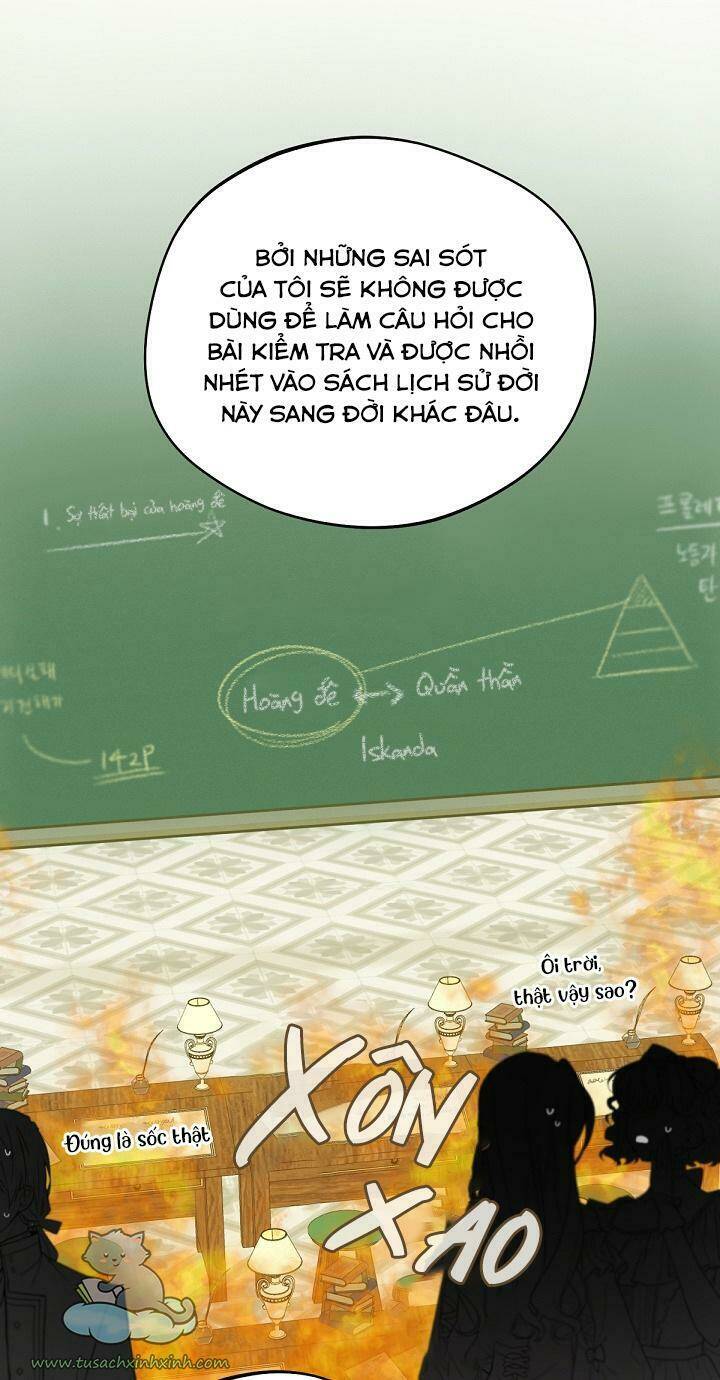 BỞI NHỮNG SAI SÓT
CỦA TÔI SẼ KHÔNG ĐƯỢC
DÙNG ĐỂ LÀM CÂU HỎI CHO
BÀI KIỂM TRA VÀ ĐƯỢC NHỒI
NHÉT VÀO SÁCH LỊCH SỬ ĐỜI
NÀY SANG ĐỜI KHÁC ĐÂU.
1. Sự thất bại của hoàng đế
프롤레
노동가
탄
Hoàng đế <-> Quần thần
Iskanda
142P
Ôi trời,
thật vậy sao?
XÔN
XAO
Đúng là sốc thật
www.tusachxinhxinh.com